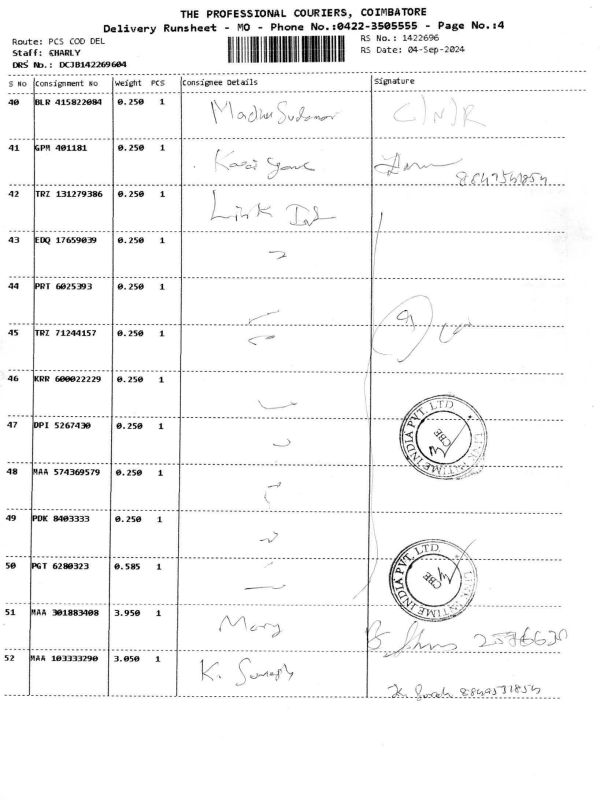 THE PROFESSIONAL COURIERS, COIMBATORE
Delivery Runsheet - MO - Phone No.:0422-3505555 - Page No.:4
Route: PCS COD DEL
RS No.: 1422696
Staff: CHARLY
RS Date: 04-Sep-2024
DRS No.: DCJB142269604
S No Consignment No Weight PCS Consignee Details Signature
40 BLR 415822084 0.250 1
41 GPM 401181 0.250 1
42 TRZ 131279386 0.250 1 Link
43 EDQ 17659039 0.250 1
44 PRT 6025393 0.250 1
45 TRZ 71244157 0.250 1
46 KRR 600022229 0.250 1
47 DPI 5267430 0.250 1
LINK INTIME INDIA PVT. LTD.
CBE
48 MAA 574369579 0.250 1
49 PDK 8403333 0.250 1
50 PGT 6280323 0.585 1
LINK INTIME INDIA PVT. LTD.
CBE
51 MAA 301883408 3.950 1 Mary
52 MAA 103333290 3.050 1 K.